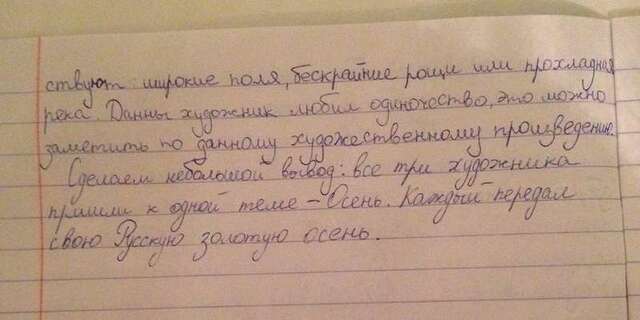 ствуют широкие поля, бескрайние рощи или прохладная
река. Данны художник любил одиночество, это можно
заметить по данному художественному произведению.
Сделаем небольшой вывод: все три художника
пришли к одной теме – Осень. Каждый передал
свою Русскую золотую осень.